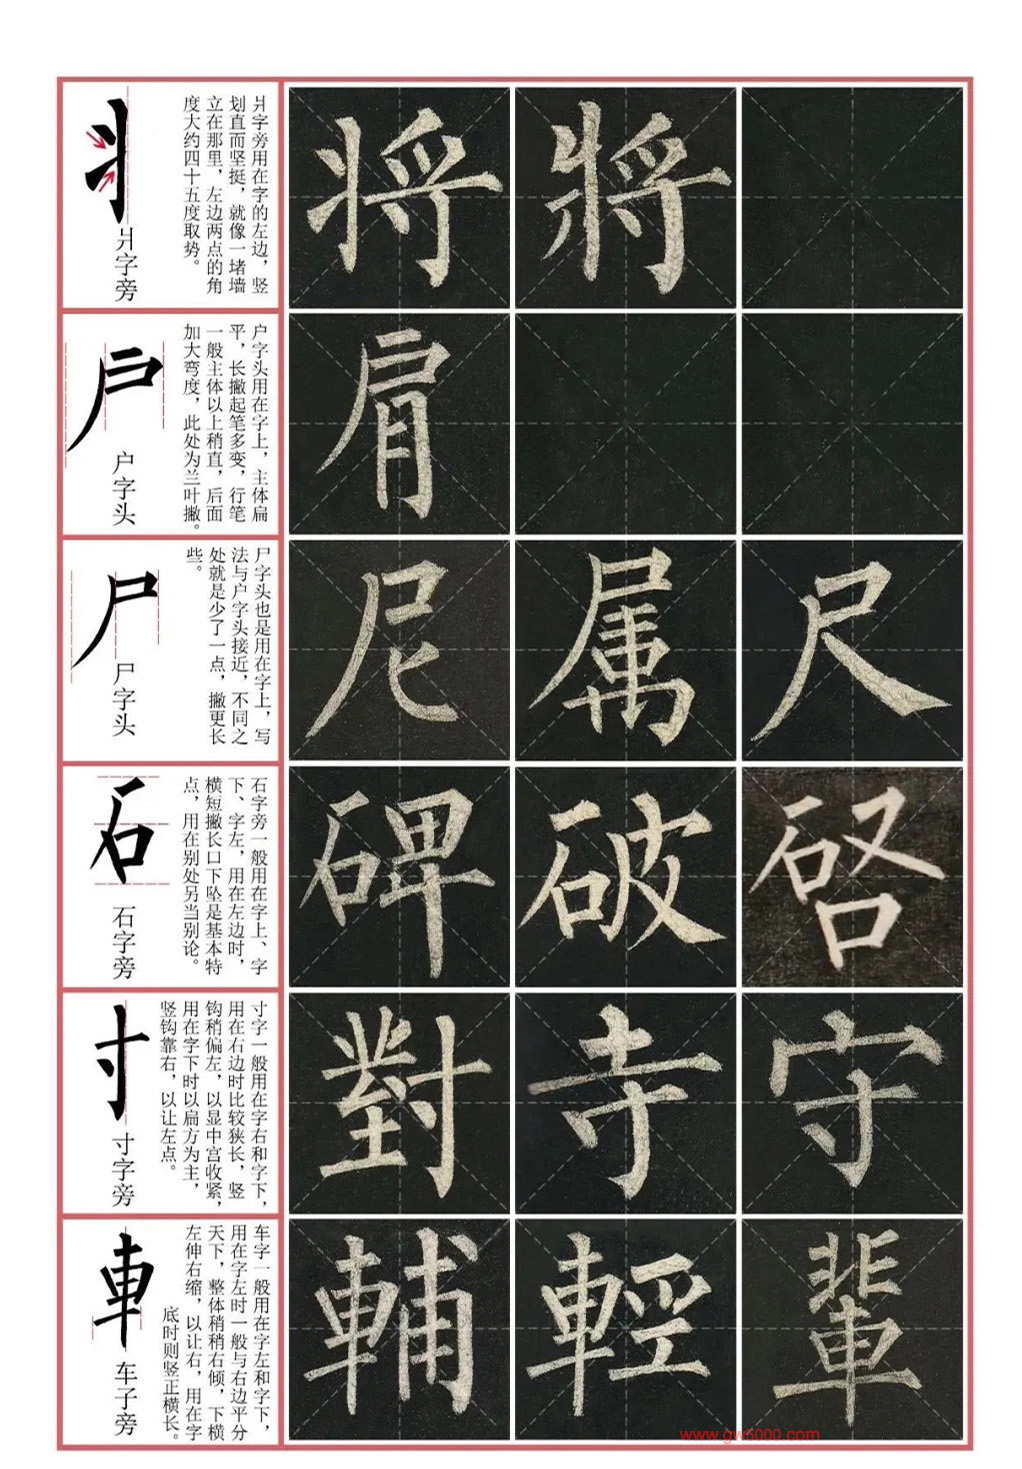 丬
丬字旁
丬字旁用在字的左边，竖
划直而坚挺，就像一堵墙
立在那里，左边两点的角
度大约四十五度取势。
将 將
户
户字头
户字头用在字上，主体扁
平，长撇起笔多变，行笔
一般主体以上稍直，后面
加大弯度，此处为兰叶撇。
肩
尸
尸字头
尸字头也是用在字上，写
法与户字头接近，不同之
处就是少了一点，撇更长
些。
尼 属 尺
石
石字旁
石字旁一般用在字上、字
下、字左，用在左边时，
横短撇长口下坠是基本特
点，用在别处另当别论。
碑 破
寸
寸字旁
寸字一般用在字右和字下，
用在右边时比较狭长，竖
钩稍偏左，以显中宫收紧，
用在字下时以扁方为主，
竖钩靠右，以让左点。
對 寺 守
車
车子旁
车字一般用在字左和字下，
用在字左时一般与右边平分
天下，整体稍稍右倾，下横
左伸右缩，以让右，用在字
底时则竖正横长。
輔 輕 輩
www.gw5000.com